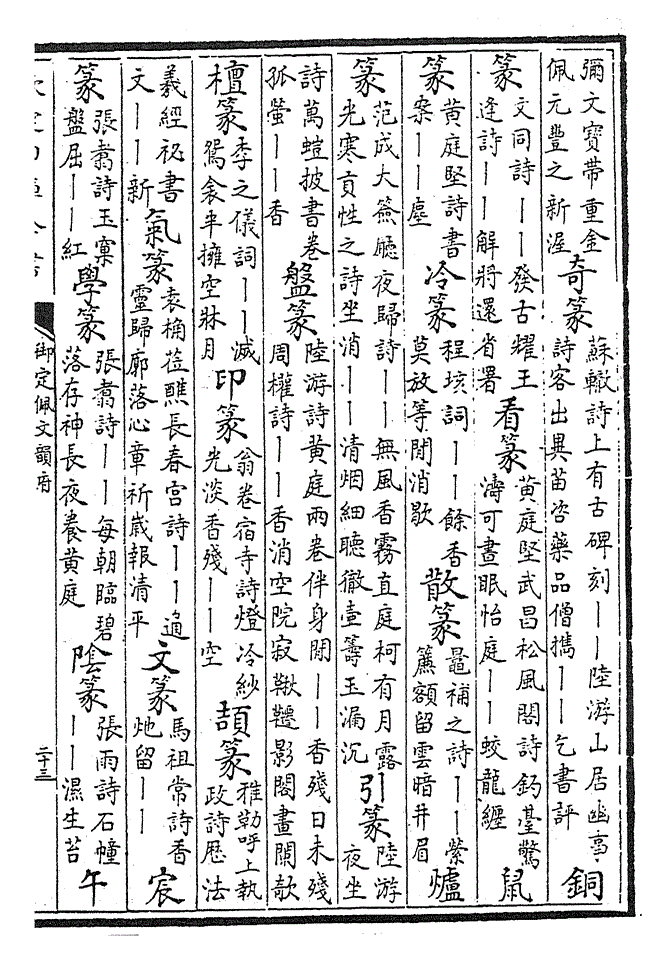 彌文寶帶重金佩元豐之新渥奇篆蘇轍詩上有古碑刻——陸游山居幽事詩客出異苗咨藥品僧攜——乞書評銅
篆文同詩——發古耀王逢詩——解將還省署看篆黃庭堅武昌松風閣詩釣臺驚濤可晝眠怡庭——蛟龍纏鼠
篆黃庭堅詩書案——塵冷篆程垓詞——餘香莫放等閒消歇散篆鼂補之詩——紫簾額留雲暗井眉爐
篆范成大簽廳夜歸詩——無風香霧直庭柯有月露光寒貢性之詩坐消——清烟細聽徹壺籌玉漏沉引篆陸游夜坐
詩萬螘披書卷孤螢——香盤篆陸游詩黃庭兩卷伴身閒——香殘日未殘周權詩——香消空院寂鞦韆影閣畫闌欹
檀篆李之儀詞——滅鴛衾半擁空牀月印篆翁卷宿寺詩燈冷紗光淡香殘——空頡篆雅勒呼上執政詩歷法
羲經祕書文——新氣篆袁桷蒞醮長春宮詩——過靈歸廓落心章祈歲報清平文篆馬祖常詩香灺留——宸
篆張翥詩玉窠盤屈——紅學篆張翥詩——每朝臨碧落存神長夜養黃庭陰篆張雨詩石幢——濕生苔午
御定佩文韻府
二十三